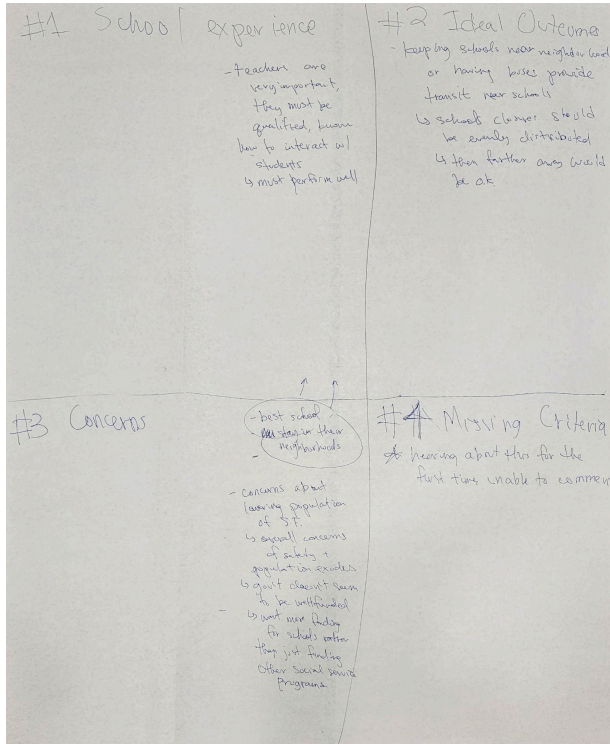 #1 School experience
- teachers are
very important,
they must be
qualified, know
how to interact w/
students
↳ must perform well
#2 Ideal Outcomes
- keeping schools near neighborhood
or having buses provide
transit near schools
↳ schools closer should
be evenly distributed
↳ then farther away would
be ok
#3 Concerns
- best school
- stay in their
neighborhoods
-
- concerns about
lowering population
of SF.
↳ overall concerns
of safety +
population exodus
↳ gov't doesn't seem
to be well funded
- ↳ want more funding
for schools rather
than just funding
other social service
programs
#4 Missing Criteria
* hearing about this for the
first time, unable to commen